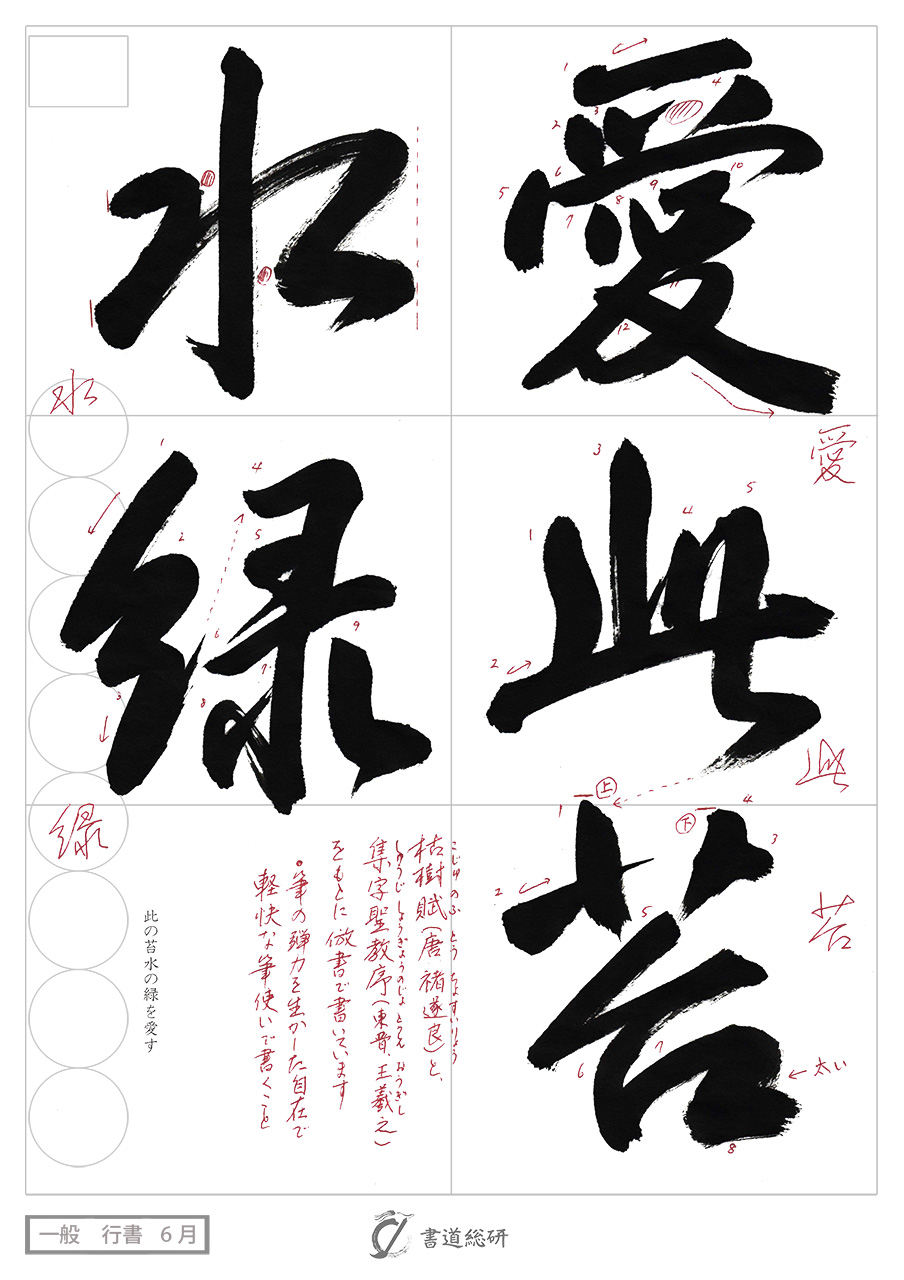 愛此苔
水緑
愛
此
苔
水
緑
上
下
太い
枯樹賦(唐 褚遂良)と、
こじゅのふ とう ちょすいりょう
集字聖教序(東晋、王羲之)
しゅうじ しょうぎょうのじょ とうしん おうぎし
をもとに倣書で書いています
・筆の弾力を生かした自在で
軽快な筆使いで書くこと
此の苔水の緑を愛す
一般 行書 6月
書道総研